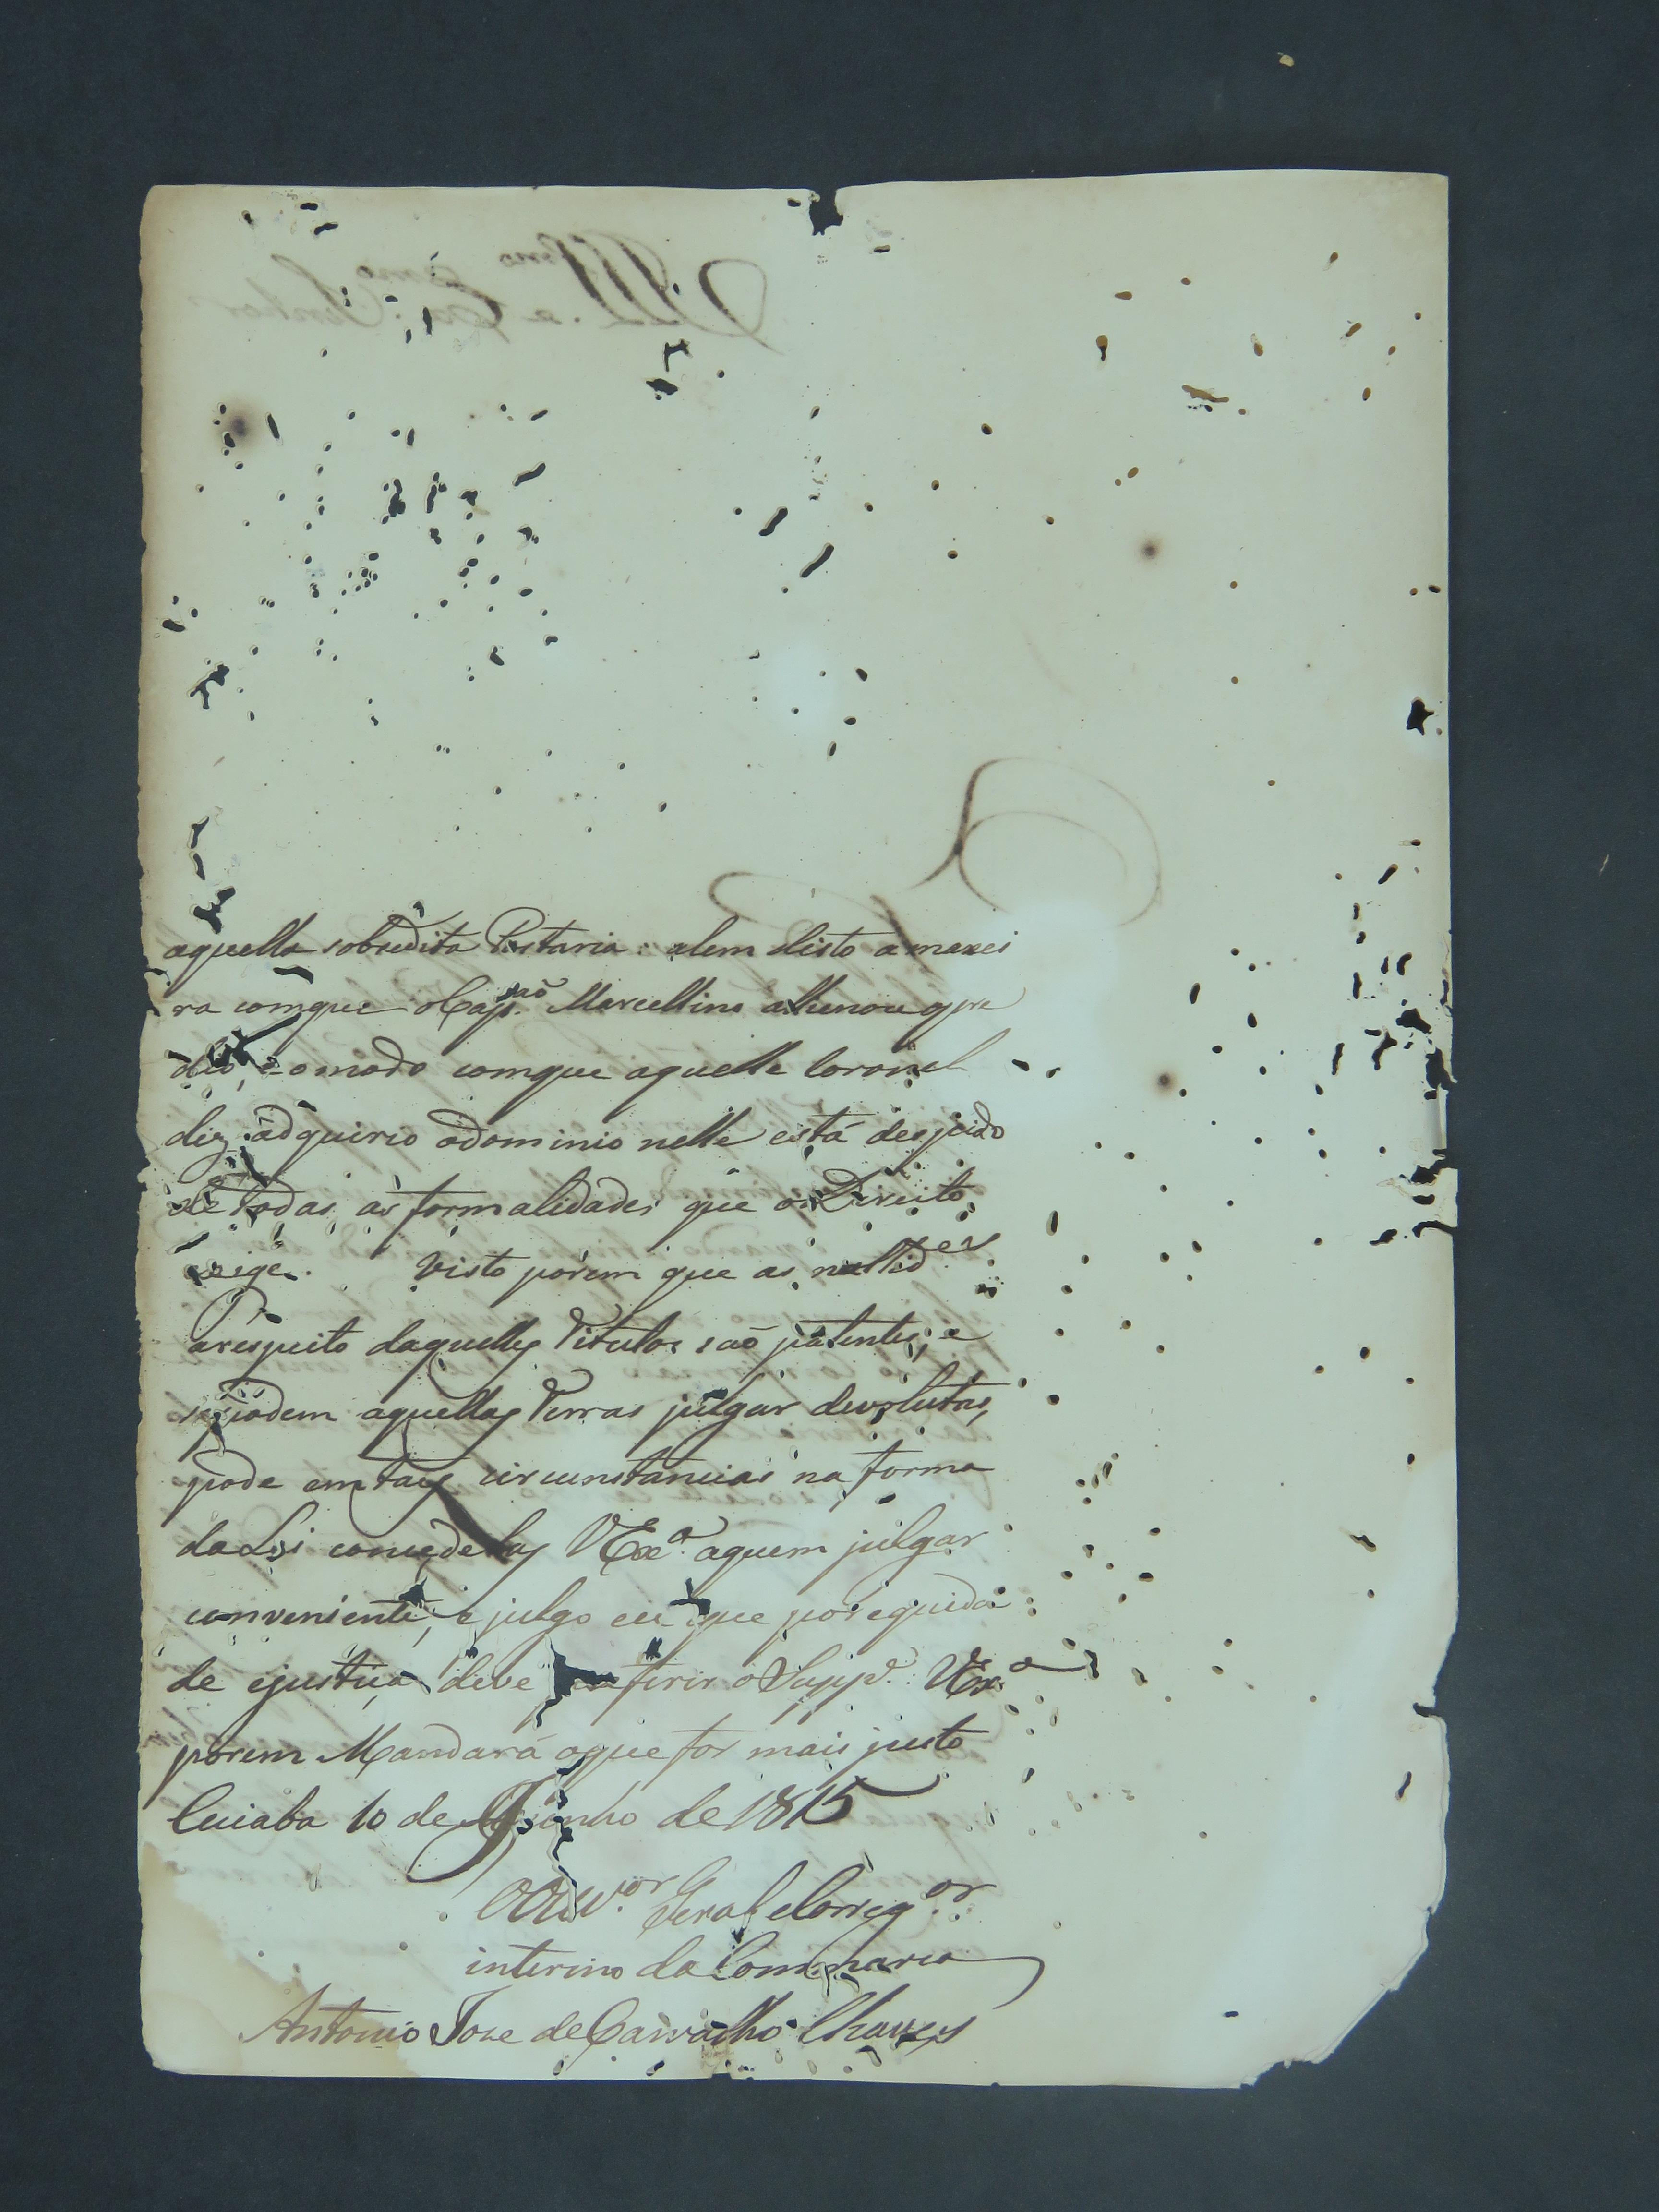 aquella sobredita Portaria: alem disto a manei
ra comque o Cap.tao Marcellino allienou o pre
dio, e o modo comque aquelle Coronel
diz adquirio odominio nelle está despido
de todas as formalidades que o Direito
exige. Visto porem que as nullid.es
arespeito daquelles Titulos saõ patentes; e
se podem aquellas Terras julgar devolutas,
pode em taes circunstancias na forma
da Lei concedelas VExa. aquem julgar
conveniente, e julgo eu que por equida
de ejustiça deve ferir o Supp.e VExa
porem Mandará oque for mais justo
Cuiaba 10 de Junho de 1815
O Ouv.or Geral e Correg.or
interino da Commarca
Antonio Joze de Carvalho Chaves